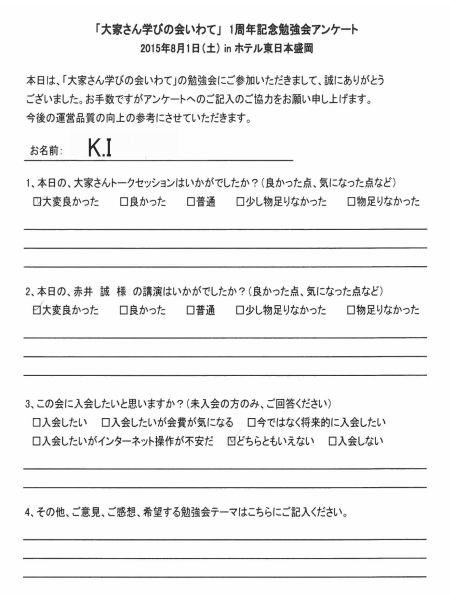 「大家さん学びの会いわて」 1周年記念勉強会アンケート
2015年8月1日(土) in ホテル東日本盛岡
本日は、「大家さん学びの会いわて」の勉強会にご参加いただきまして、誠にありがとう
ございました。お手数ですがアンケートへのご記入のご協力をお願い申し上げます。
今後の運営品質の向上の参考にさせていただきます。
お名前: K.I
1、本日の、大家さんトークセッションはいかがでしたか?(良かった点、気になった点など)
☑大変良かった □良かった □普通 □少し物足りなかった □物足りなかった
2、本日の、赤井 誠 様 の講演はいかがでしたか?(良かった点、気になった点など)
☑大変良かった □良かった □普通 □少し物足りなかった □物足りなかった
3、この会に入会したいと思いますか?(未入会の方のみ、ご回答ください)
□入会したい □入会したいが会費が気になる □今ではなく将来的に入会したい
□入会したいがインターネット操作が不安だ ☑どちらともいえない □入会しない
4、その他、ご意見、ご感想、希望する勉強会テーマはこちらにご記入ください。